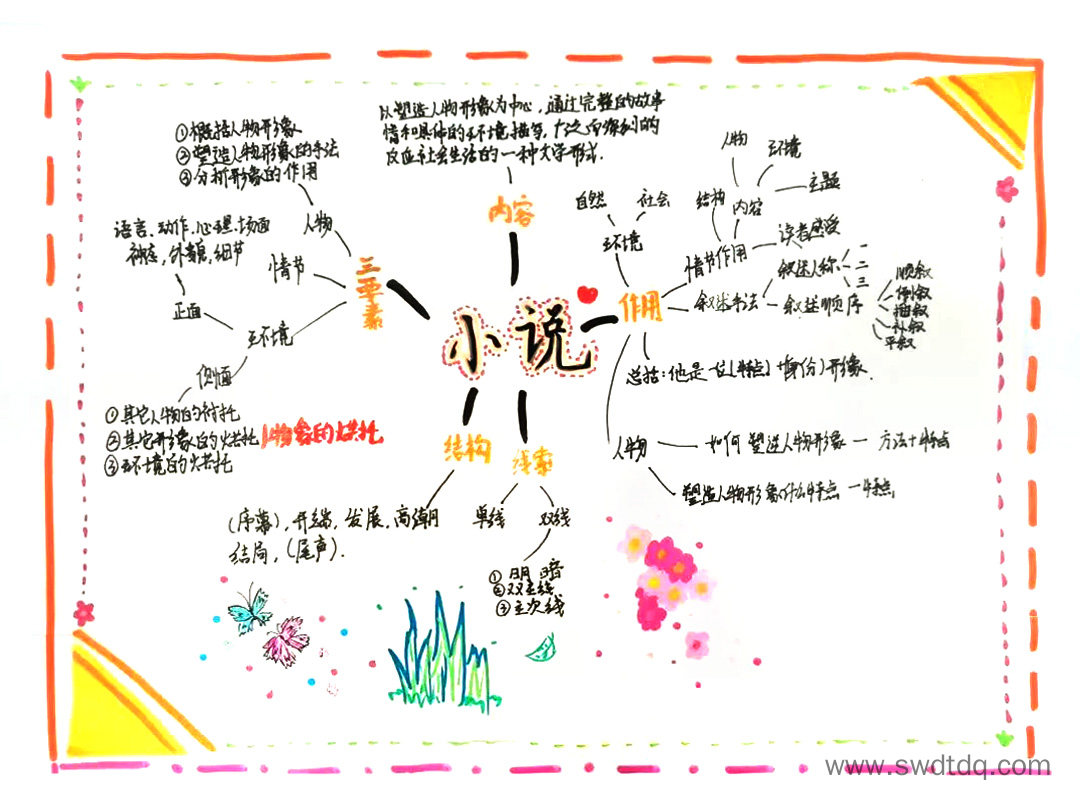 以塑造人物形象为中心，通过完整的故事
情和具体的环境描写，广泛而深刻的
反应社会生活的一种文学形式.
内容
①概括人物形象
②塑造人物形象的手法
③分析形象的作用
人物
语言、动作、心理、场面
神态，外貌，细节
情节
三要素
正面
环境
侧面
①其它人物的衬托
②其它形象的烘托
③环境的烘托
人物象的烘托
小说
作用
自然
社会
环境
人物
环境
主题
结构
内容
情节作用
读者感受
叙述手法
叙述人称
一
二
三
叙述顺序
顺叙
倒叙
插叙
补叙
平叙
总括：他是一位（特点）+（身份）形像.
人物
如何塑造人物形象一 方法+特点
塑造人物形象什么特点 一特点
结构
(序幕)，开端，发展，高潮
结局，(尾声).
线索
单线
双线
①明 暗
②双主线
③主次线
www.swdtdq.com